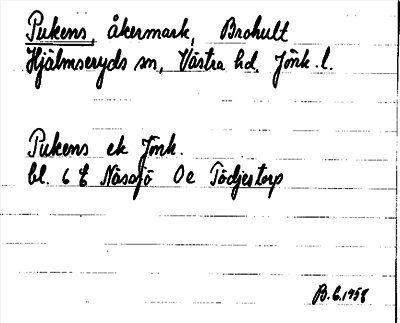 Pukens, åkermark, Brohult
Hjälmseryds sn, Västra hd, Jönk. l.
Pukens ek Jönk.
bl. 6 E Nässjö 0e Tödjestorp
B.E. 1958